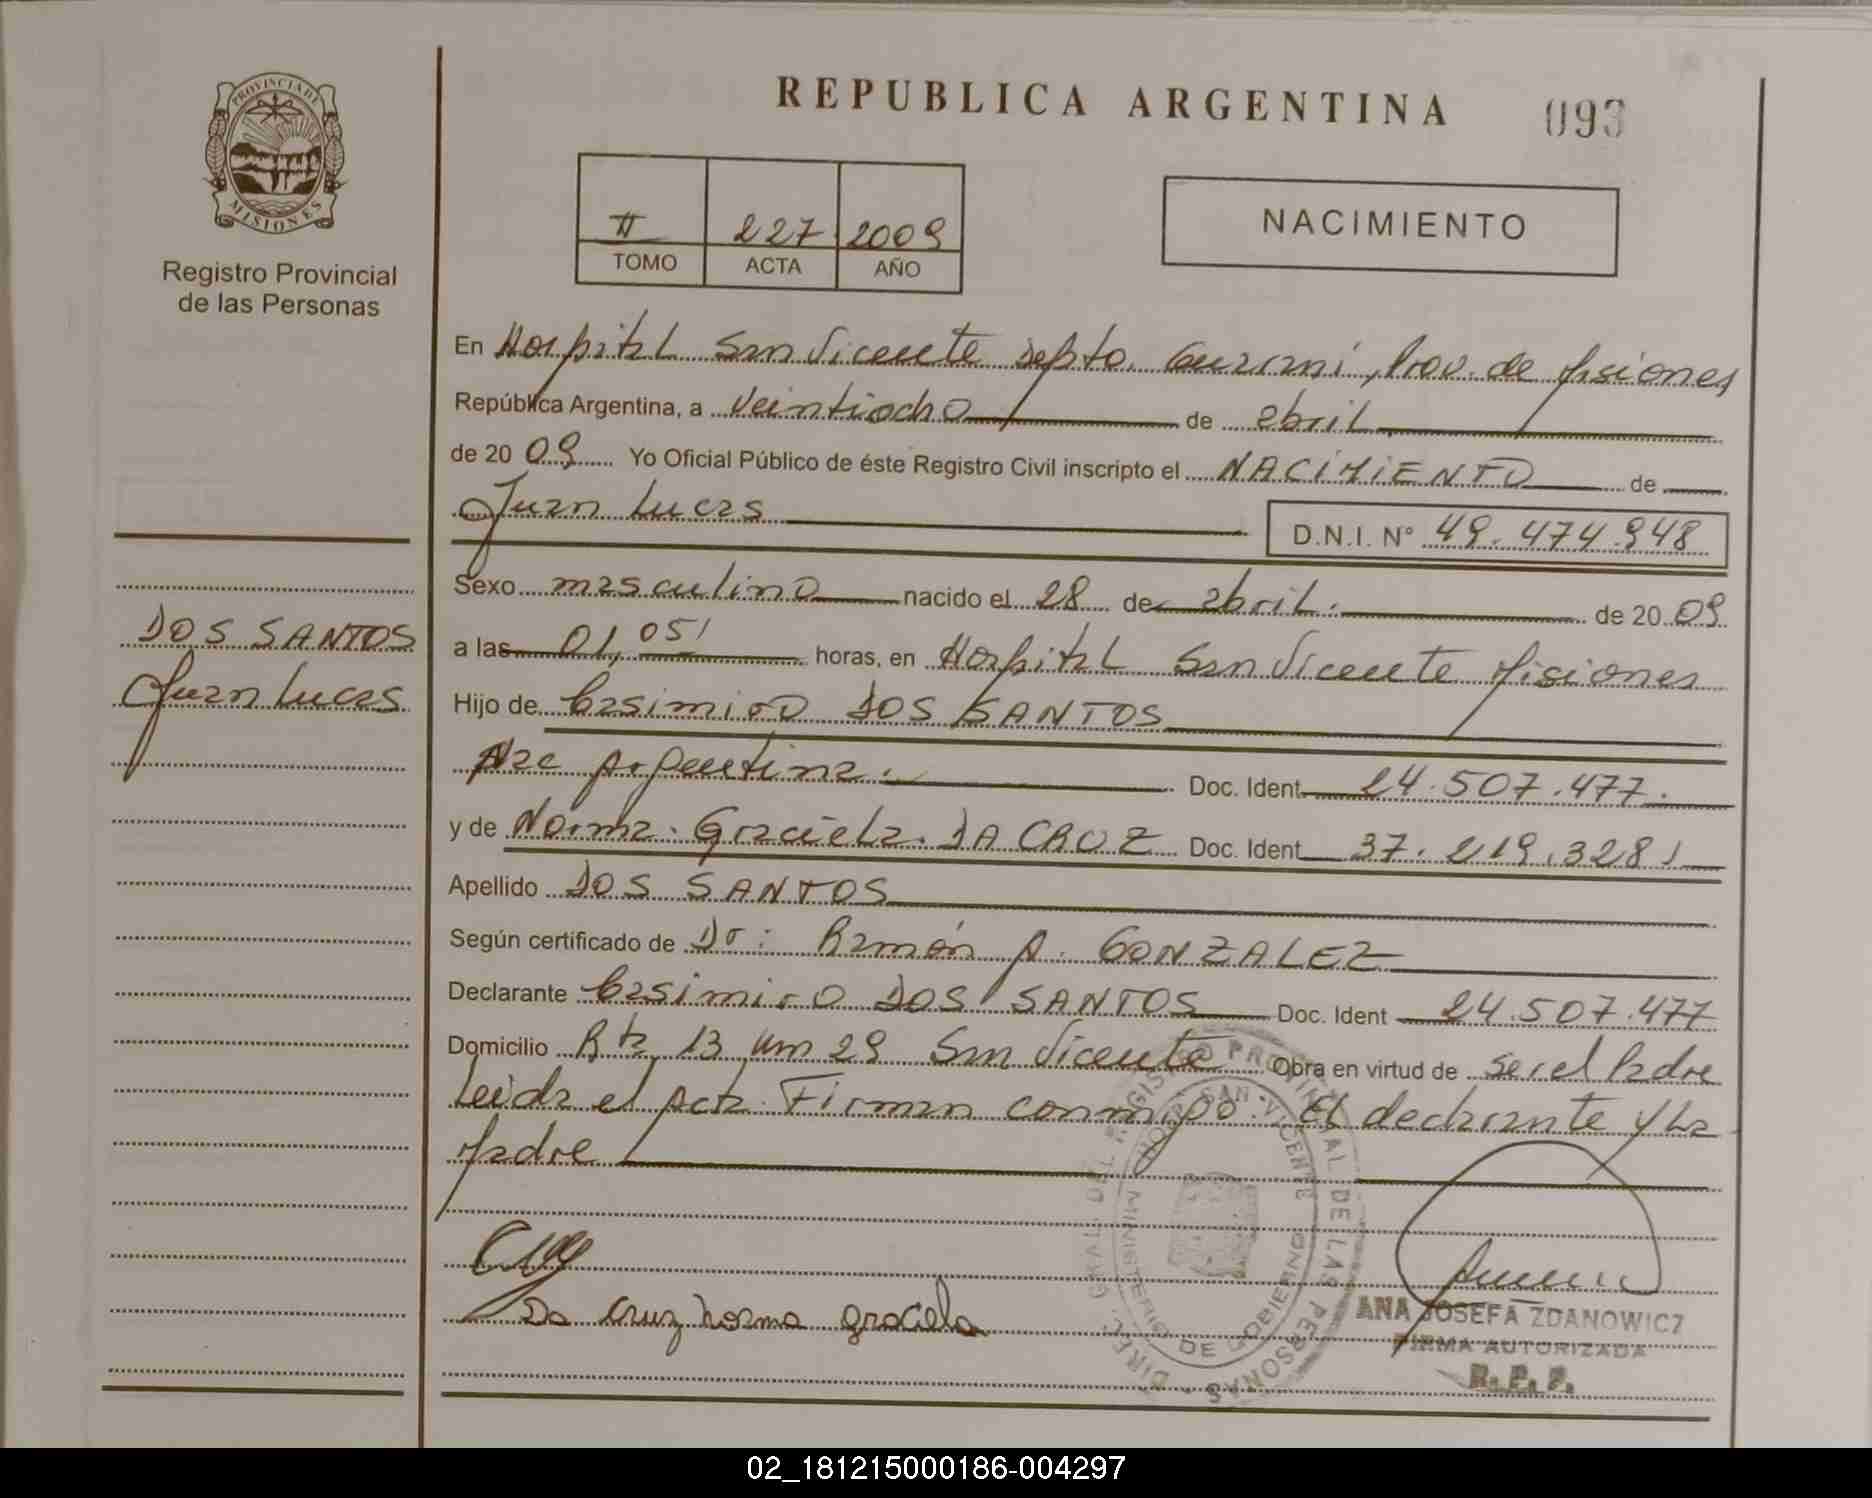 REPUBLICA ARGENTINA
093
PROVINCIA DE
MISIONES
Registro Provincial
de las Personas
II 227 2009
TOMO ACTA AÑO
NACIMIENTO
En Hospital San Vicente Depto. Guaraní, Prov. de Misiones
República Argentina, a veintiocho de abril
de 20 09 Yo Oficial Público de éste Registro Civil inscripto el NACIMIENTO de
Juan Lucas
D.N.I. Nº 49.474.948
Sexo masculino nacido el 28 de abril. de 20 09
a las 01,05' horas, en Hospital San Vicente Misiones
Hijo de Casimiro DOS SANTOS
Nac Argentina. Doc. Ident. 24.507.477.
y de Norma Graciela DA CRUZ Doc. Ident. 37.219.328
Apellido DOS SANTOS
Según certificado de Dr: Ramón A. GONZALEZ
Declarante Casimiro DOS SANTOS Doc. Ident 24.507.477
Domicilio Rta 13 Km 29 San Vicente Obra en virtud de ser el Padre
Leida el Acta Firman conmigo El declarante y La
Madre
DOS SANTOS
Juan Lucas
Da Cruz norma graciela
DIREC. GRAL. DEL REGISTRO PROVINCIAL DE LAS PERSONAS
HOSP. SAN VICENTE
MINISTERIO DE GOBIERNO
ANA JOSEFA ZDANOWICZ
FIRMA AUTORIZADA
R.P.P.
02_181215000186-004297